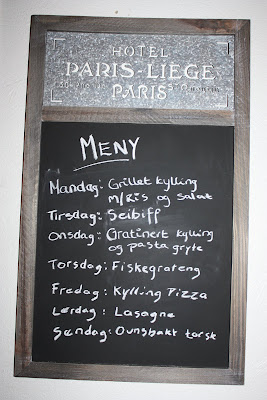 HÔTEL
PARIS-LIEGE
PARIS
MENY
Mandag: Grillet kylling
m/Ris og salat
Tirsdag: Seibiff
Onsdag: Gratinert kylling
og pasta gryte
Torsdag: Fiskegrateng
Fredag: Kylling Pizza
Lørdag: Lasagne
Søndag: Ovnsbakt torsk